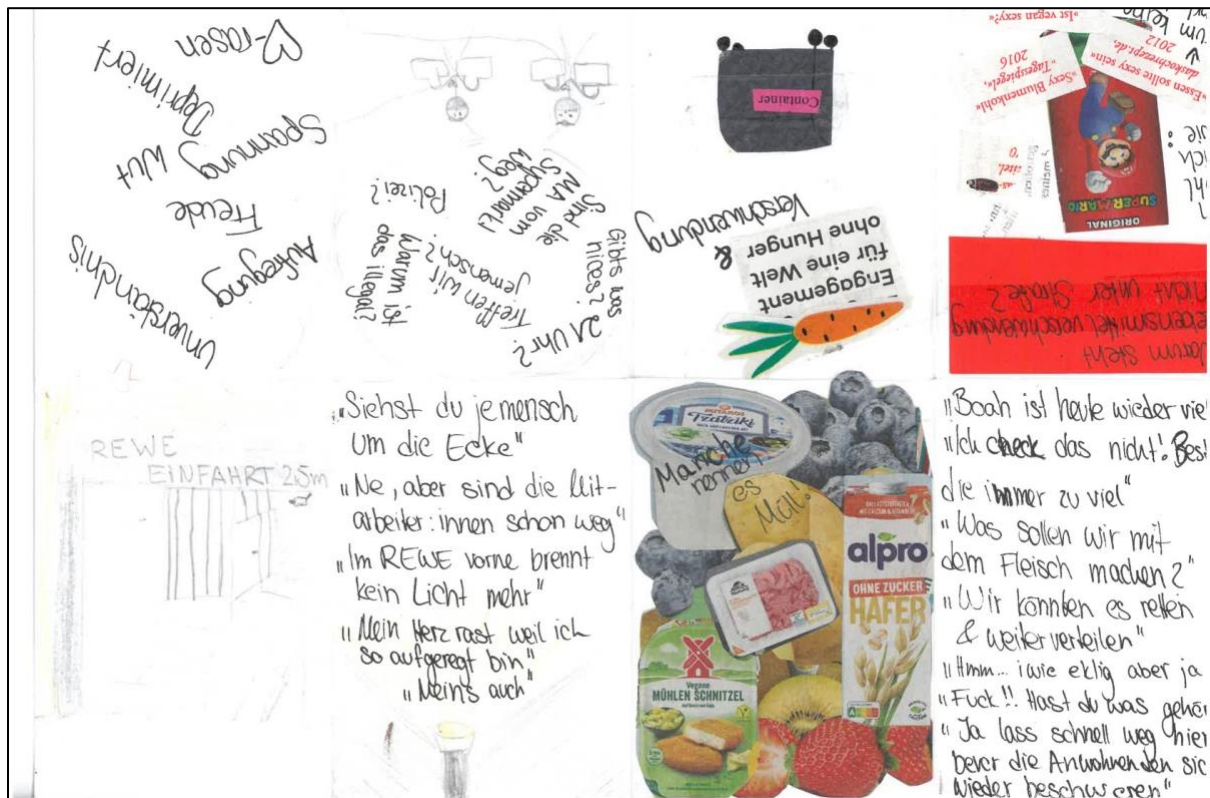 ♡-rasen
Deprimiert
Spannung Wut
Freude
Aufregung
Unverständnis
Polizei?
Sind die
MA vom
Supermarkt
weg?
Gibts was
nices?
Treffen wir
jemensch?
Warum ist
das illegal?
21 Uhr?
Container
Verschwendung
&
Engagement
für eine Welt
ohne Hunger
»Ist vegan sexy?«
»Essen sollte sexy sein«
daskochrezept.de,
2012
»Sexy Blumenkohl«
»Tagesspiegel«,
2016
ORIGINAL
SUPER MARIO
arum steht
ebensmittelverschwendung
nicht unter Strafe?
REWE
EINFAHRT 2,5m
"Siehst du jemensch
um die Ecke"
"Ne, aber sind die Mit-
arbeiter:innen schon weg"
"Im REWE vorne brennt
kein Licht mehr"
"Mein Herz rast weil ich
so aufgeregt bin"
"Meins auch"
Tzatziki
Manche
nennen
es
Müll!
alpro
OHNE ZUCKER
HAFER
Vegane
MÜHLEN SCHNITZEL
"Boah ist heute wieder vie
"Ich check das nicht! Best
die immer zu viel"
"Was sollen wir mit
dem Fleisch machen?"
"Wir könnten es retten
& weiterverteilen"
"Hmm... iwie eklig aber ja
"Fuck!! Hast du was gehör
"Ja lass schnell weg hier
bevor die Anwohnenden sic
wieder beschweren"